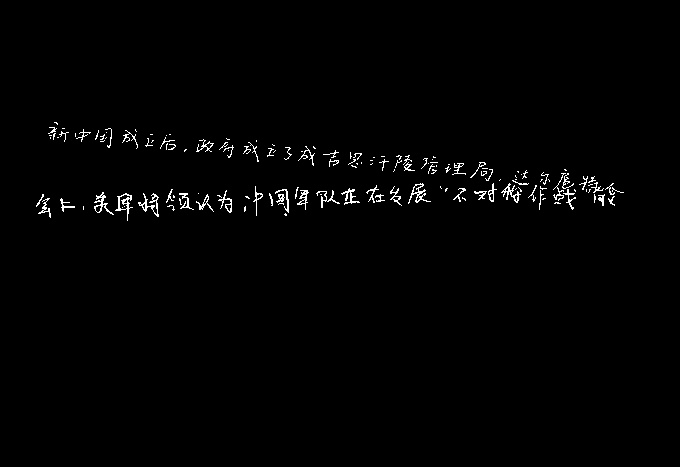 新中国成立后，政府成立了成吉思汗陵管理局，达尔扈特
会上，美军将领认为，中国军队正在发展“不对称作战”能